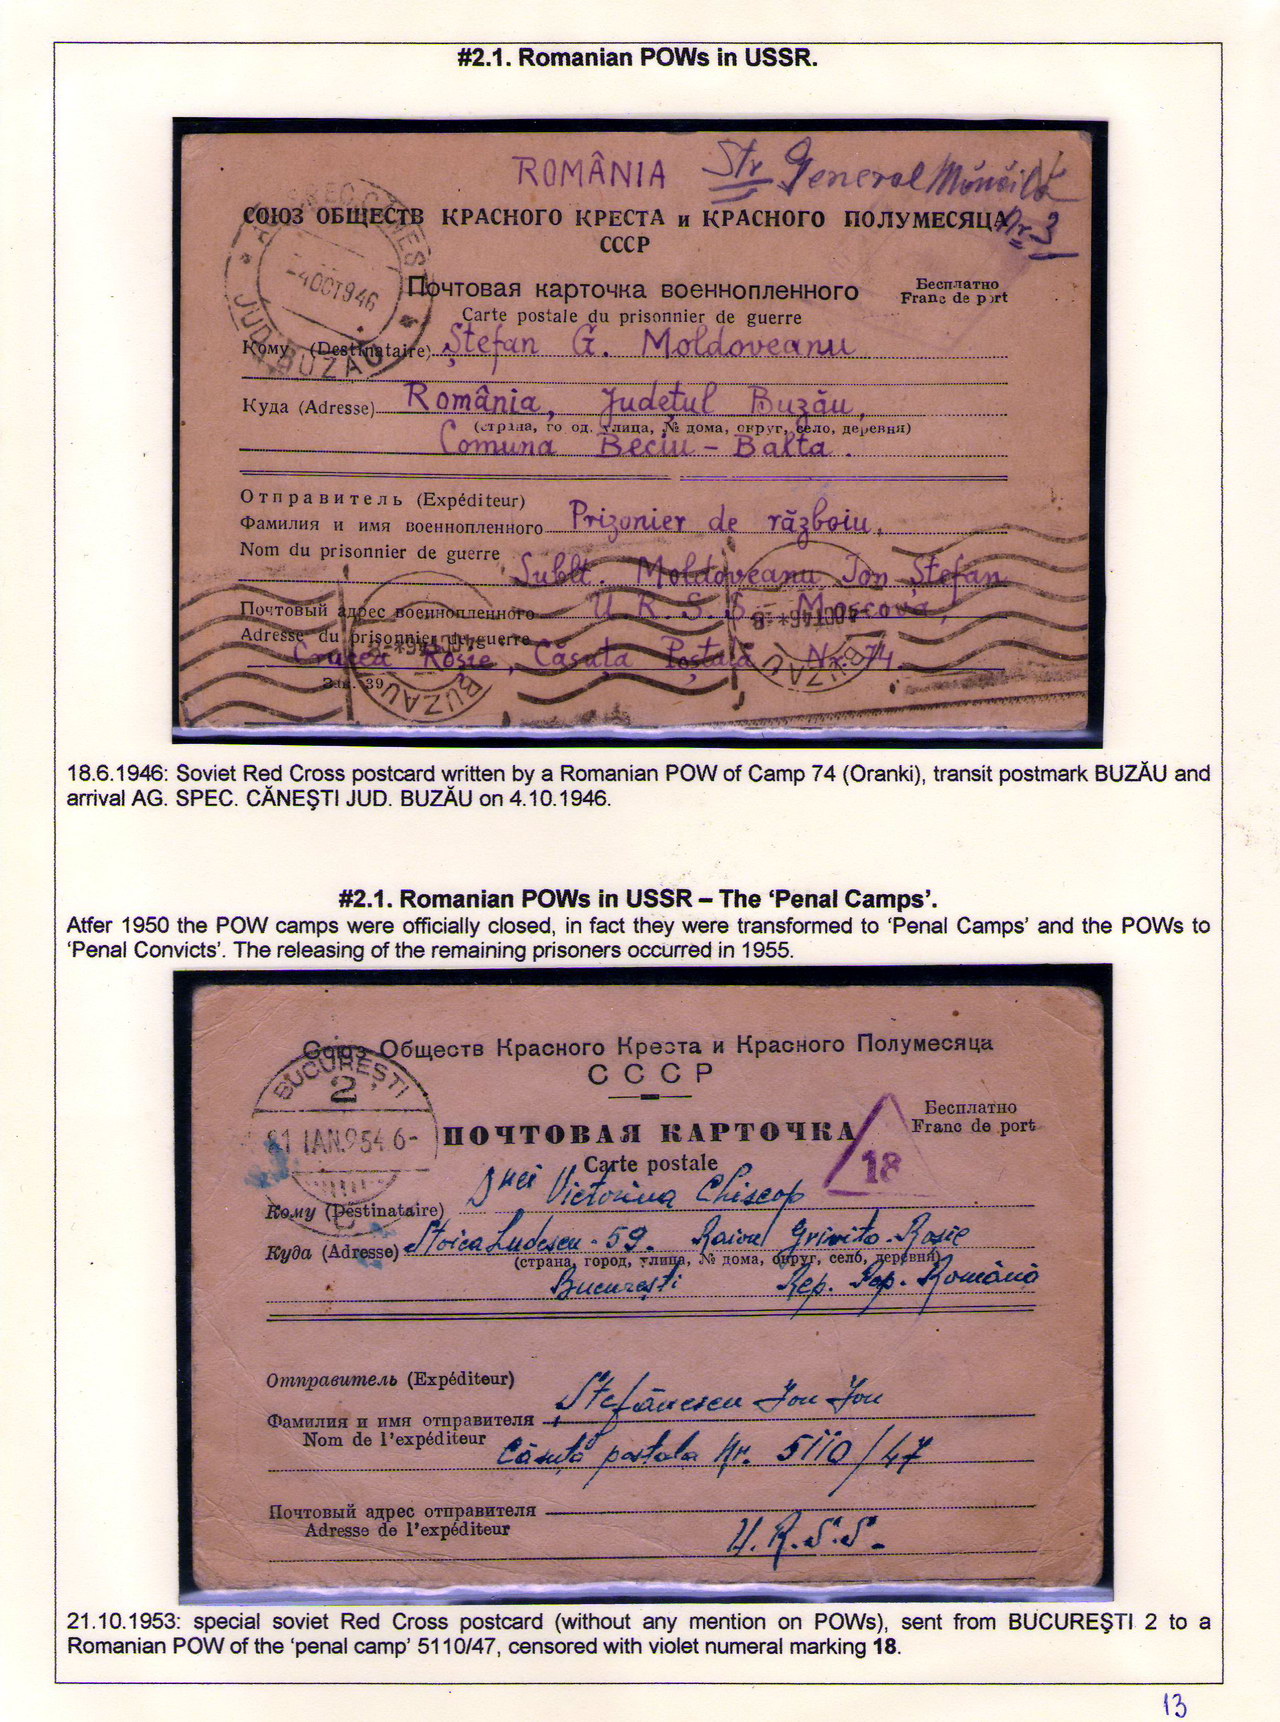 #2.1. Romanian POWs in USSR.
ROMÂNIA Str General Mănăilă
Nr. 3
СОЮЗ ОБЩЕСТВ КРАСНОГО КРЕСТА и КРАСНОГО ПОЛУМЕСЯЦА
СССР
4 OCT 946
JUD. BUZĂU
Почтовая карточка военнопленного
Carte postale du prisonnier de guerre
Бесплатно
Franc de port
Кому (Destinataire) Ștefan G. Moldoveanu
Куда (Adresse) România, Județul Buzău,
(страна, город, улица, № дома, округ, село, деревня)
Comuna Beciu - Balta.
Отправитель (Expéditeur)
Фамилия и имя военнопленного Prizonier de războiu,
Nom du prisonnier de guerre
Sublt. Moldoveanu Ion Ștefan
Почтовый адрес военнопленного U.R.S.S. - Moscova,
Adresse du prisonnier de guerre
Crucea Roșie, Căsuța Poștală Nr. 74.
Зак. 39
BUZAU
BUZAU
18.6.1946: Soviet Red Cross postcard written by a Romanian POW of Camp 74 (Oranki), transit postmark BUZĂU and
arrival AG. SPEC. CĂNEŞTI JUD. BUZĂU on 4.10.1946.
#2.1. Romanian POWs in USSR – The ‘Penal Camps’.
Atfer 1950 the POW camps were officially closed, in fact they were transformed to ‘Penal Camps’ and the POWs to
‘Penal Convicts’. The releasing of the remaining prisoners occurred in 1955.
Союз Обществ Красного Креста и Красного Полумесяца
СССР
BUCUREŞTI
2
21 IAN. 954. 6-
ПОЧТОВАЯ КАРТОЧКА
Carte postale
18
Бесплатно
Franc de port
Кому (Destinataire) Dnei Victorina Chiscop
Куда (Adresse) Stoica Ludescu - 59. Raion Grivita - Rosie
(страна, город, улица, № дома, округ, село, деревня)
București Rep. Pop. Română
Отправитель (Expéditeur)
Фамилия и имя отправителя Ștefănescu Ion Ion
Nom de l'expéditeur Căsuță postala Nr. 5110/47
Почтовый адрес отправителя
Adresse de l'expéditeur U.R.S.S.
21.10.1953: special soviet Red Cross postcard (without any mention on POWs), sent from BUCUREŞTI 2 to a
Romanian POW of the ‘penal camp’ 5110/47, censored with violet numeral marking 18.
13